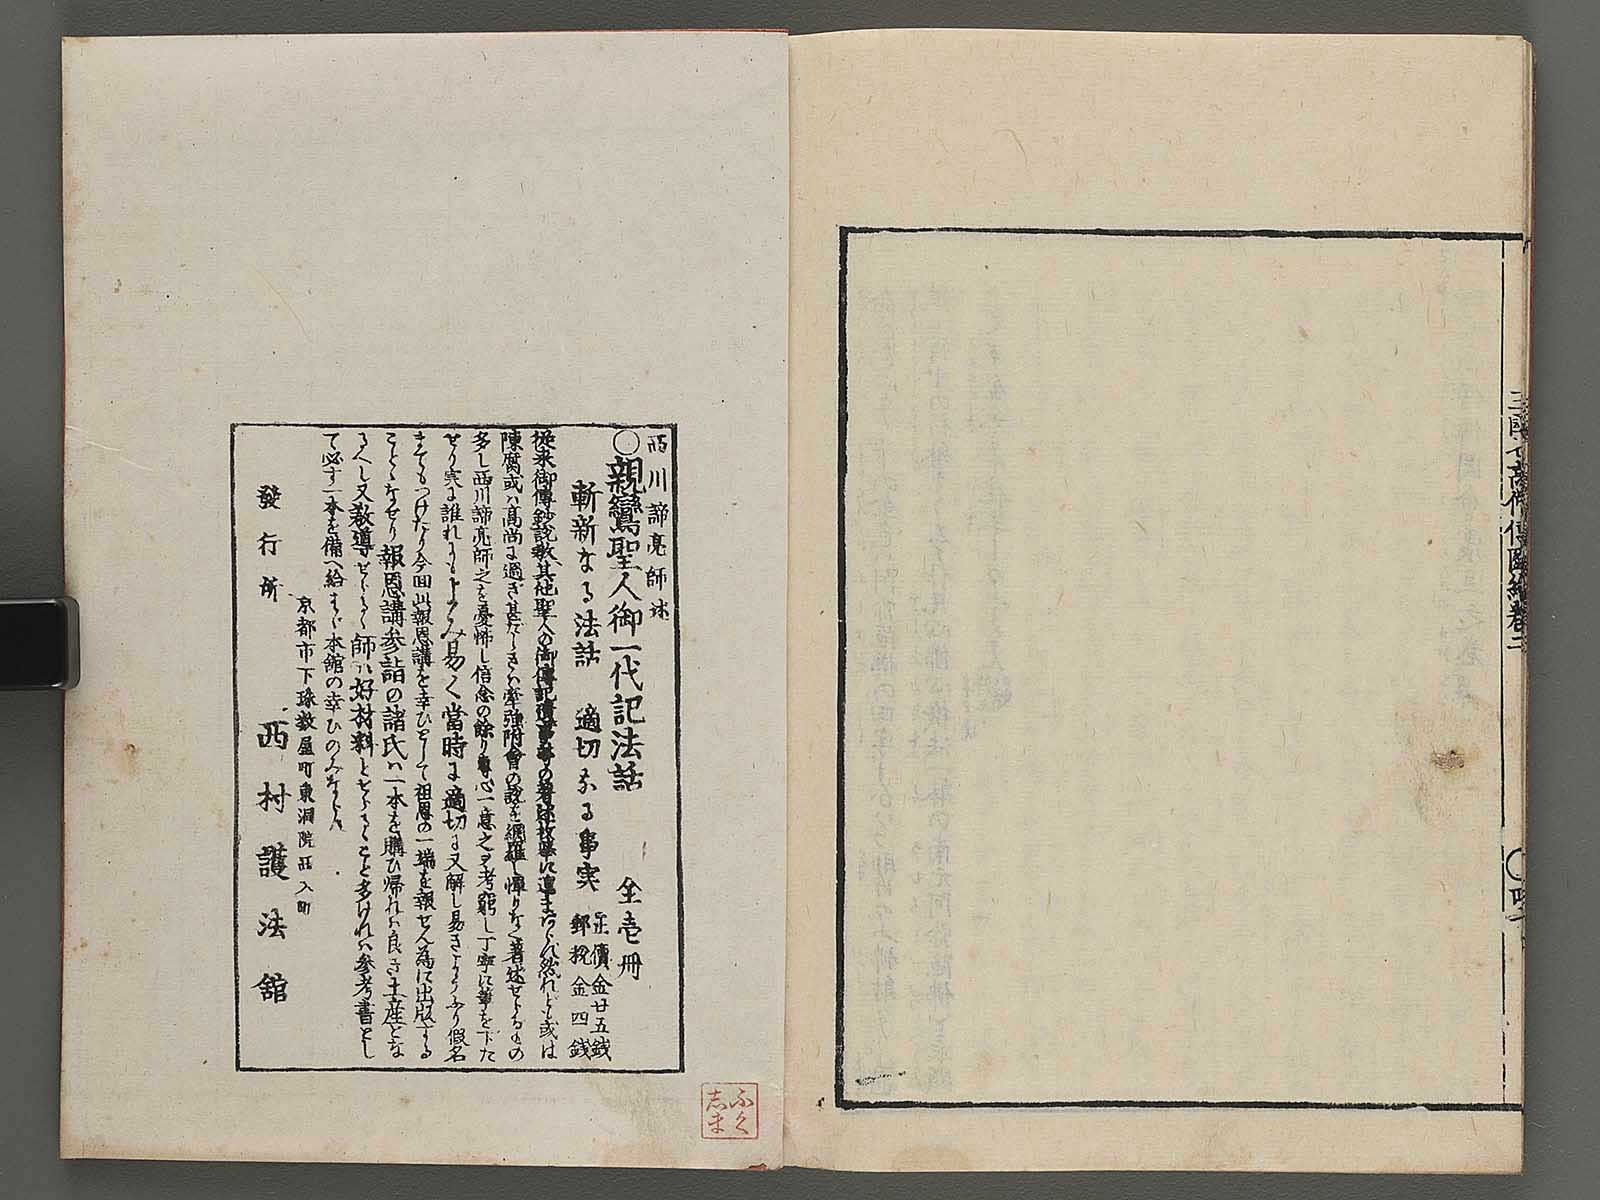 三國七高僧傳圖繪卷二
〇四十
西川諦亮師述
〇親鸞聖人御一代記法話 全壱冊
斬新なる法話 適切なる事実
正價金廿五銭
郵税金四銭
從来御傳鈔説教其他聖人の御傳記遺事等の著述枚挙に遑まあらず然れども或は
陳腐或ハ高尚に過ぎ甚だしきハ牽強附會の説を網羅し憚りなく著述せしもの
多し西川諦亮師之を憂怖し信念の餘り専心一意之ヲ考窮し丁寧に筆を下た
せり実に誰れにもよみ易く當時に適切に又解し易きよりふり假名
まてもつけたり今回此報恩講を幸ひとして祖恩の一端を報せん為に出版する
ことゝなせり報恩講参詣の諸氏ハ一本を購ひ帰れハ良き土産とな
るへし又教導せらるゝ師ハ好材料とせらるゝこと多けれハ参考書とし
て必す一本を備へ給まらば本館の幸ひのみならん
京都市下珠数屋町東洞院西入町
發行所 西村護法舘
ふくしま